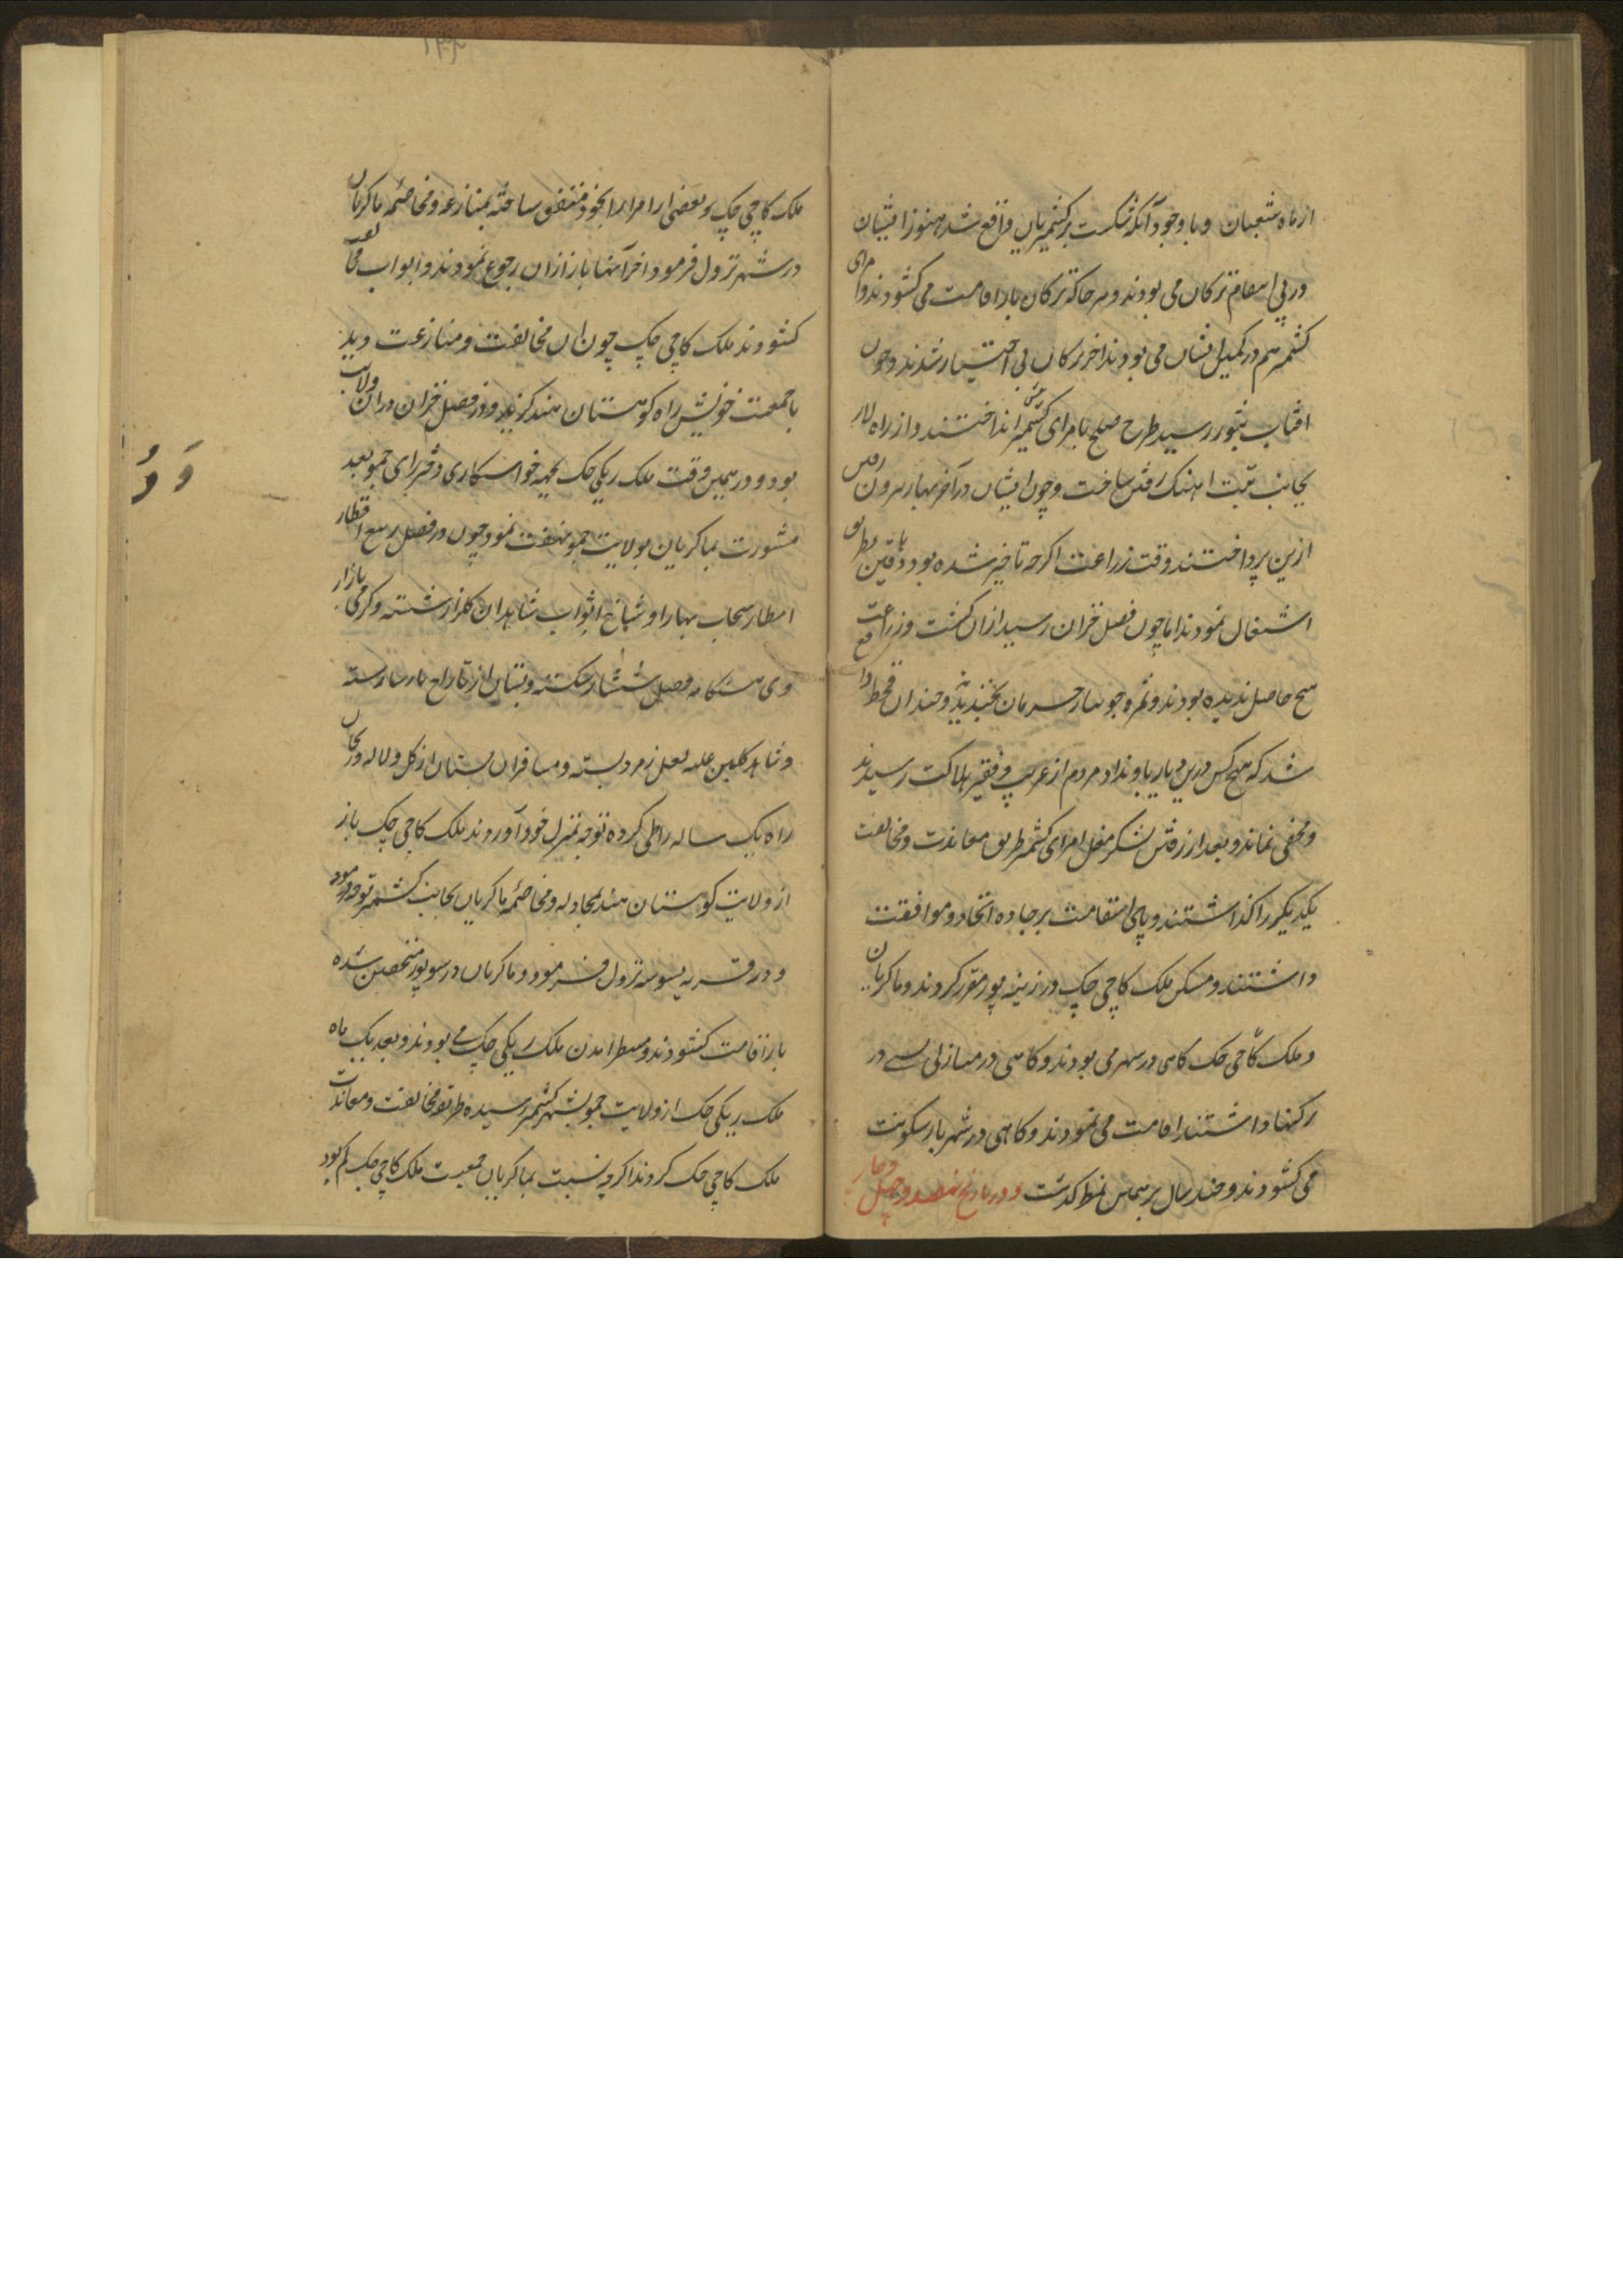 از ماه شعبان و با وجود آنکه شکست بر کشمیریان واقع شد هنوز ایشان
در پی انتقام ترکان می بودند و هر جا که ترکان بار اقامت می کشودند و امرای
کشمیر هم در کمین ایشان می بودند اخر ترکان بی اختیار شدند و چون
افتاب بثور رسید طرح صلح بامرای کشمیر انداختند و از راه لار
بجانب تبت اهنک رفتن ساخت و چون ایشان در آخر بهار بیرون رفتن
ازین پرداختند وقت زراعت اکرچه تاخیر شده بود دهاقین
اشتغال نمودند اما چون فصل خزان رسید ازان کشت و زراعت
هیچ حاصل ندیده بودند و ثمره جز حرمان نچیدند و چندان قحط واقع
شد که هیچ کس درین دیار یاد نداد مردم از غریب و فقیر بهلاکت رسیدند
و مخفی نماند و بعد از رفتن لشکر مغل امرای کشمیر طریق معاندت و مخالفت
یکدیکر را کذاشتند و پای استقامت بر جاده اتحاد و موافقت
داشتند و مسکن ملک کاچی چک در زینه پور مقرر کردند و ماکریان
و ملک کاچی چک کاهی در شهر می بودند و کاهی در منازلی که در
پرکنها داشتند اقامت می نمودند و کاهی در شهر بار سکونت
می کشودند و چند سال بر همین نمط کذشت و در تاریخ نهصد و چهل و چهار
ملک کاچی چک و بعضی از امرا را بخود متفق ساخته بمنازعه و مخاصمه ماکریان
در شهر نزول فرمود اخر آنها باز ازان رجوع نمودند و ابواب مخالفت
کشودند ملک کاچی چک چون ان مخالفت و منازعت دید
با جمعیت خویش راه کوهستان هند کزید و در فصل خزان دران ولایت
بود و در همین وقت ملک ریکی چک بجهة خواستکاری دختر رای جمو بعد
مشورت بماکریان بولایت جمو نهضت نمود چون در فصل ربیع اقطار
امطار سحاب بهار اوساخ اثواب شاهدان کلزار شسته و کرمی بازار
دی هنکامه فصل شتا شکسته و بستان از تاراج
و شاهد کلبن حله لعل زمرد بسته و مسافران بستان از کل و لاله و ریحان
راه یک ساله را طی کرده توجه بمنزل خود آوردند ملک کاچی چک باز
از ولایت کوهستان هند بمجادله و مخاصمه ماکریان بجانب کشمیر توجه فرمود
و در قریه نزول فرمود و ماکریان در سوپور متحصن شده
بار اقامت کشودند و منتظر امدن ملک ریکی چک می بودند و بعد یک ماه
ملک ریکی چک از ولایت جمو بشهر کشمیر رسیده طریقه مخالفت و معاندت
ملک کاچی چک کردند اکرچه نسبت بماکریان جمعیت ملک کاچی چک کم بود